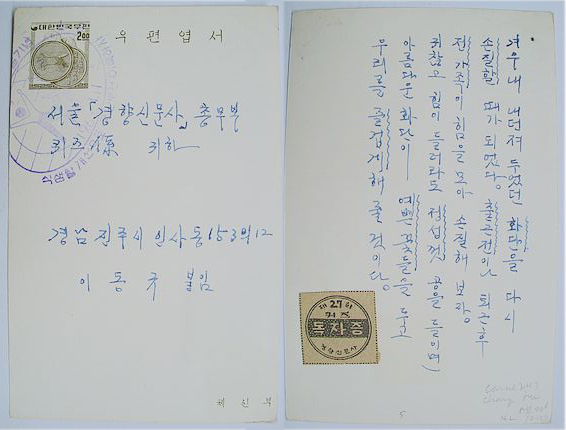 대한민국우편
2.00
우편엽서
서울「경향신문사」총무부
퀴즈係 귀하
식생활개선
경남 진주시 인사동 153의 12
이동규 불임
체신부
겨우내 내던져 두었던 화단을 다시
손질할 때가 되었다. 출근전이나 퇴근후
전가족이 힘을 모아 손질해 보장.
귀찮고 힘이 들더라도 정성껏 공을 들이며
아름다운 화단이 예쁜 꽃들을 두고
우리를 즐겁게 해 줄 것이다.
제27회
퀴즈
독자증
경향신문사
5